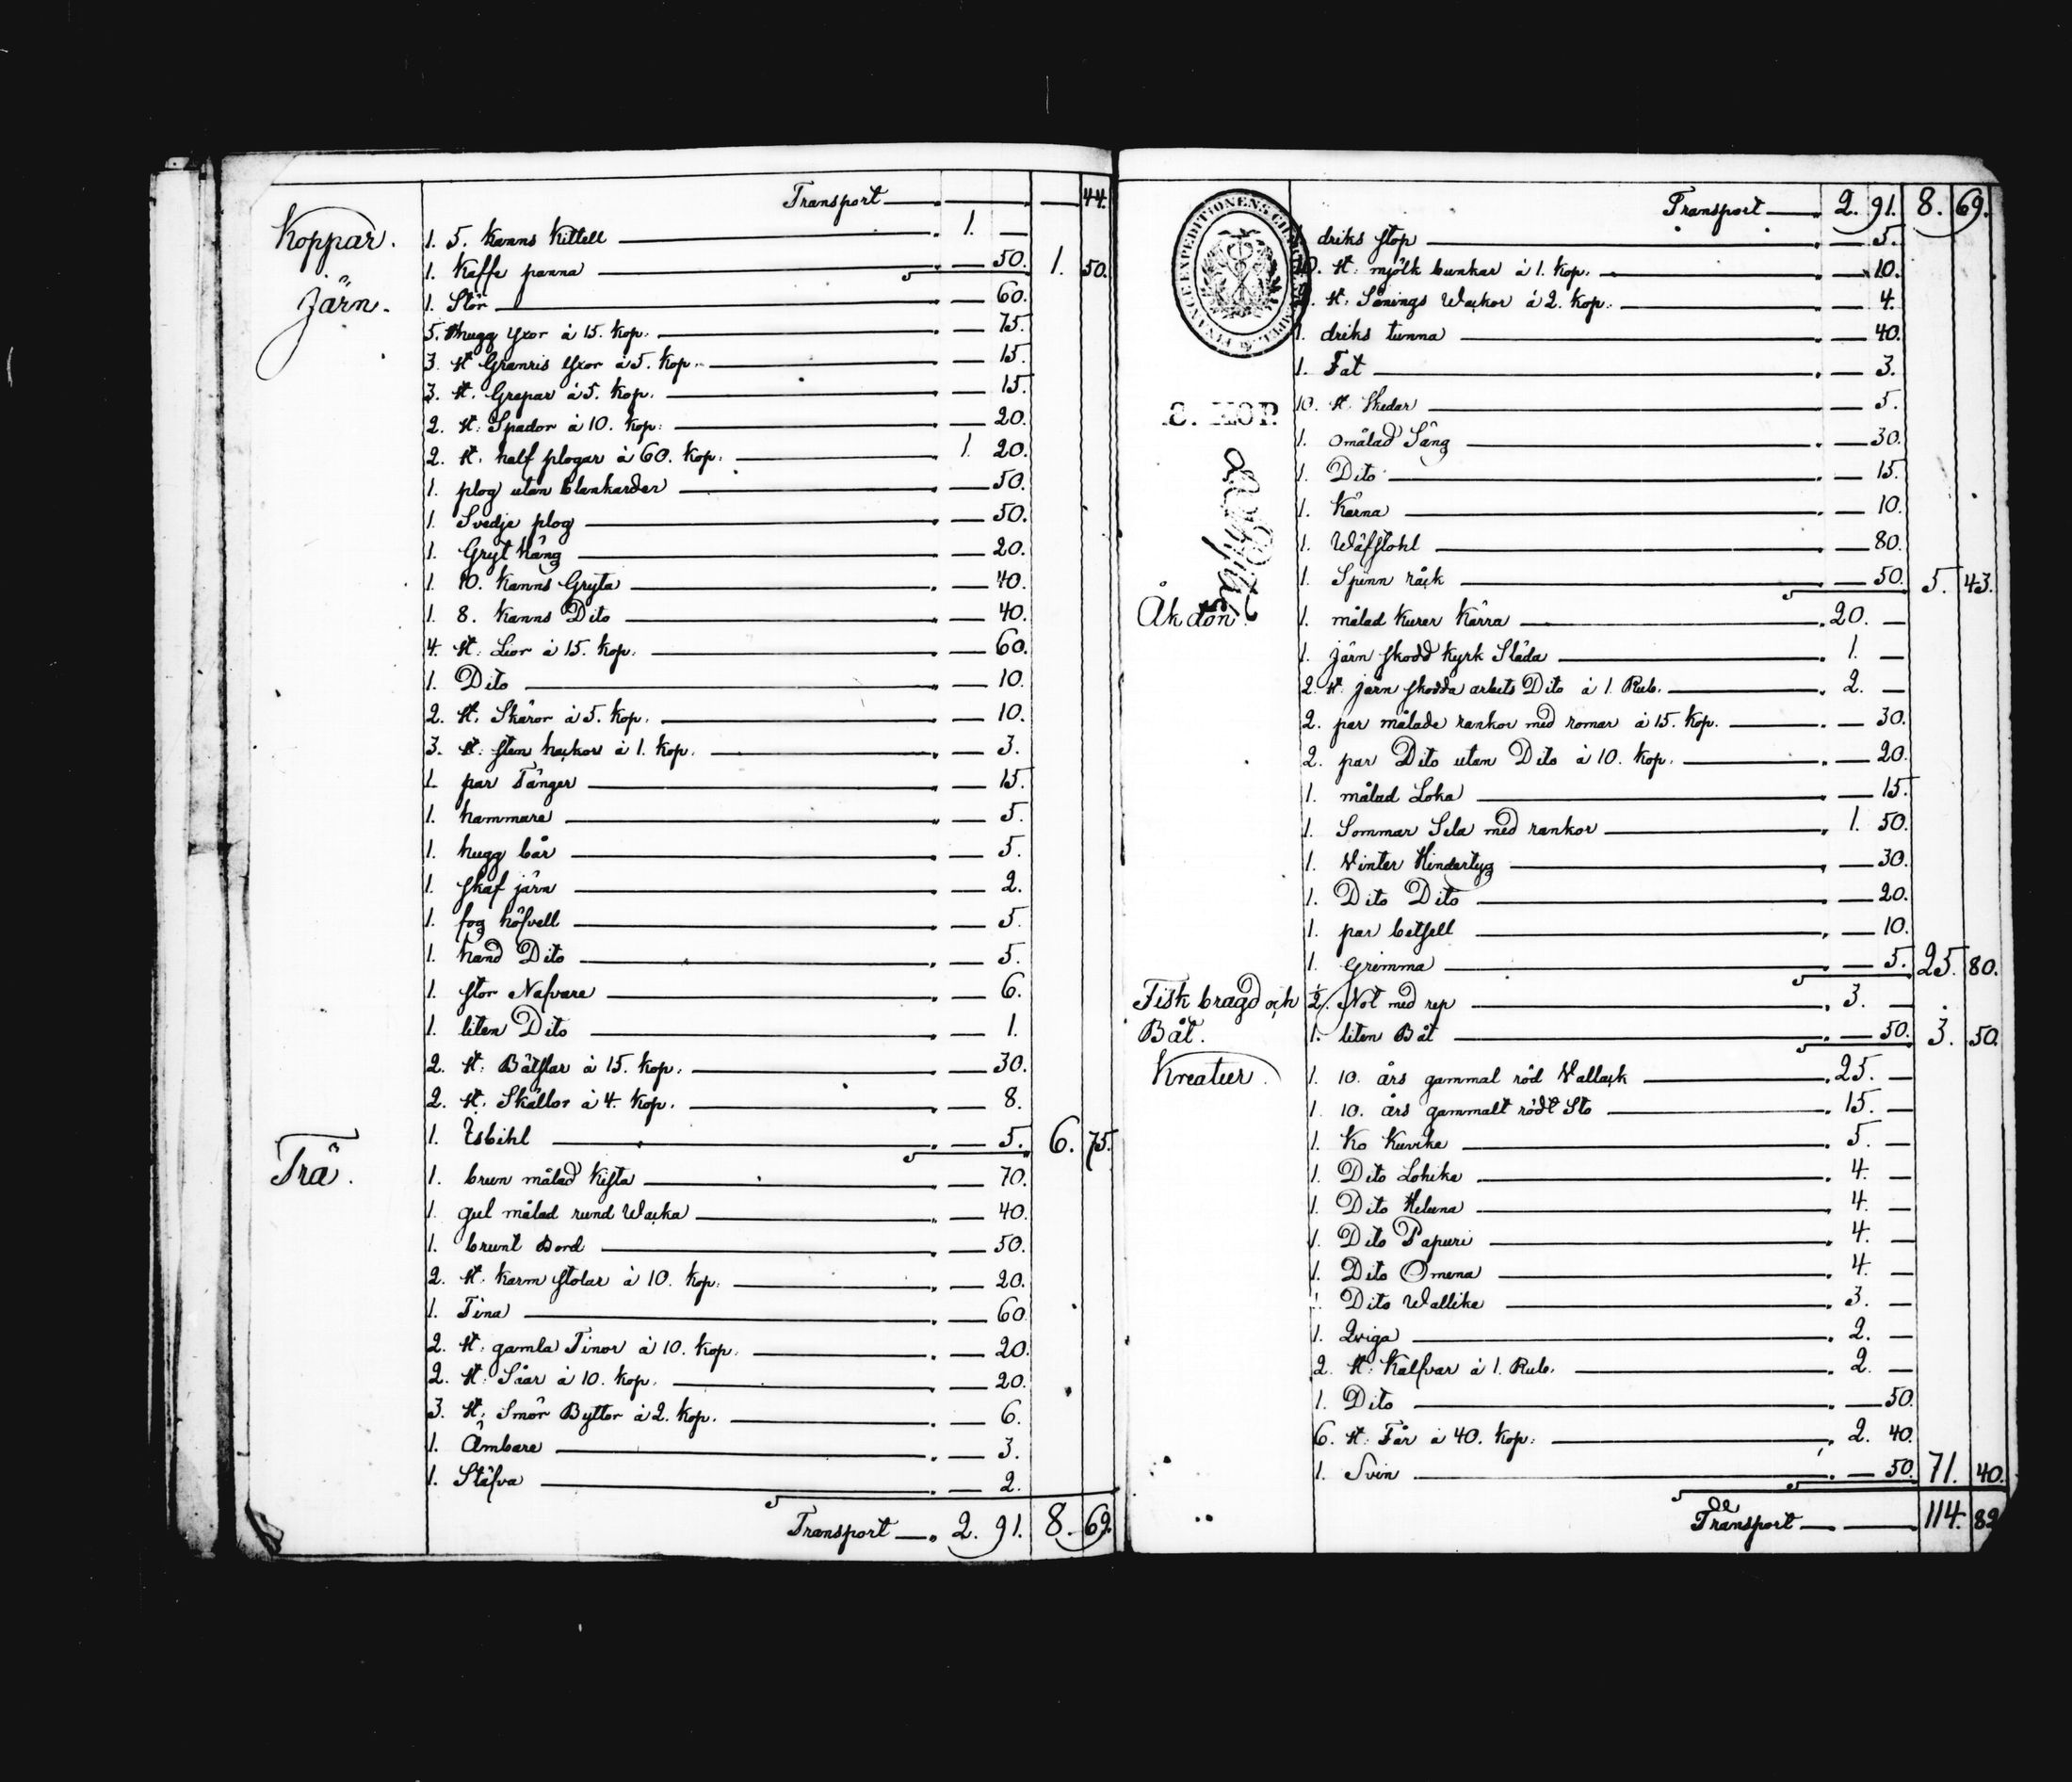 Transport — 44.
Koppar. 1. 5. Kanns Kittell 1. —
1. Kaffe panna — 50. 1. 50.
Järn. 1. Stör — 60.
5. st hugg yxor à 15. Kop. — 75.
3. st Granris yxor à 5. Kop. — 15.
3. st. Grepar à 5. Kop. — 15.
2. st: Spador à 10. Kop: — 20.
2. st. half plogar à 60. Kop. 1. 20.
1. plog utan blankarder — 50.
1. Svedje plog — 50.
1. Gryt häng — 20.
1. 10. Kanns Gryta — 40.
1. 8. Kanns Dito — 40.
4. st: Lior à 15. Kop. — 60.
1. Dito — 10.
2. st. Skäror à 5. Kop. — 10.
3. st: sten hackor à 1. Kop. — 3.
1. par Tänger — 15.
1. hammare — 5.
1. hugg bår — 5.
1. skaf järn — 2.
1. fog höfvell — 5.
1. hand Dito — 5.
1. stor Nafvare — 6.
1. liten Dito — 1.
2. st: Bätslar à 15. Kop. — 30.
2. st. Skällor à 4. Kop. — 8.
1. Isbihl — 5. 6. 75.
Trä. 1. brun målad Kista — 70.
1. gul målad rund Wacka — 40.
1. brunt Bord — 50.
2. st. Karm stolar à 10. Kop. — 20.
1. Tina — 60.
2. st: gamla Tinor à 10. Kop. — 20.
2. st: Såar à 10. Kop. — 20.
3. st: Smör Byttor à 2. Kop. — 6.
1. Ämbare — 3.
1. Stäfva — 2.
Transport — 2. 91. 8. 69.
Transport — 2. 91. 8. 69.
1. driks stop — 5.
10. st: mjölk bunkar à 1. Kop. — 10.
2. st: Sånings Wackor à 2. Kop. — 4.
1. driks tunna — 40.
1. Fat — 3.
KOP.
10. st. skedar — 5.
1. omålad Säng — 30.
1. Dito — 15.
1. Kärna — 10.
1. Wäfstohl — 80.
1. Spinn råck — 50. 5. 43.
Åkdon. 1. målad Kurer Kärra 20. —
1. järn skodd Kyrk Släda 1. —
2. st. järn skodda arbets Dito à 1. Rub. 2. —
2. par målade rankor med romar à 15. Kop. — 30.
2. par Dito utan Dito à 10. Kop. — 20.
1. målad Loka — 15.
1. Sommar Sela med rankor 1. 50.
1. Vinter Hindertyg — 30.
1. Dito Dito — 20.
1. par betsell — 10.
1. Grimma — 5. 25. 80.
Fisk bragd och ½. Not med rep 3. —
Båt. 1. liten Båt — 50. 3. 50.
Kreatur. 1. 10. års gammal röd Vallack 25. —
1. 10. års gammalt rödt Sto 15. —
1. Ko Kuvike 5. —
1. Dito Lohika 4. —
1. Dito Heluna 4. —
1. Dito Papuri 4. —
1. Dito Omena 4. —
1. Dito Wallika 3. —
1. Qviga 2. —
2. st: Kalfvar à 1. Rub. 2. —
1. Dito — 50.
6. st: Får à 40. Kop: 2. 40.
1. Svin — 50. 71. 40.
Transport — 114. 82